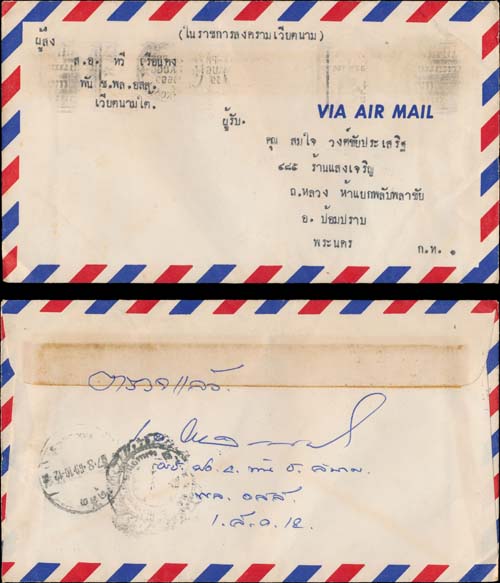 (ในราชการสงครามเวียดนาม)
ผู้ส่ง
ส.อ. ทวี เรียนทง
พัน ช.พล.อสส.
เวียตนามใต้.
VIA AIR MAIL
ผู้รับ.
คุณ สมใจ วงศ์ชัยประเสริฐ
๔๘๕ ร้านแสงเจริญ
ถ.หลวง ห้าแยกพลับพลาชัย
อ. ป้อมปราบ
พระนคร ก.ท. ๑
ตรวจแล้ว
พัน ช. สนาม
พล อสส
1 ส.ค. 12